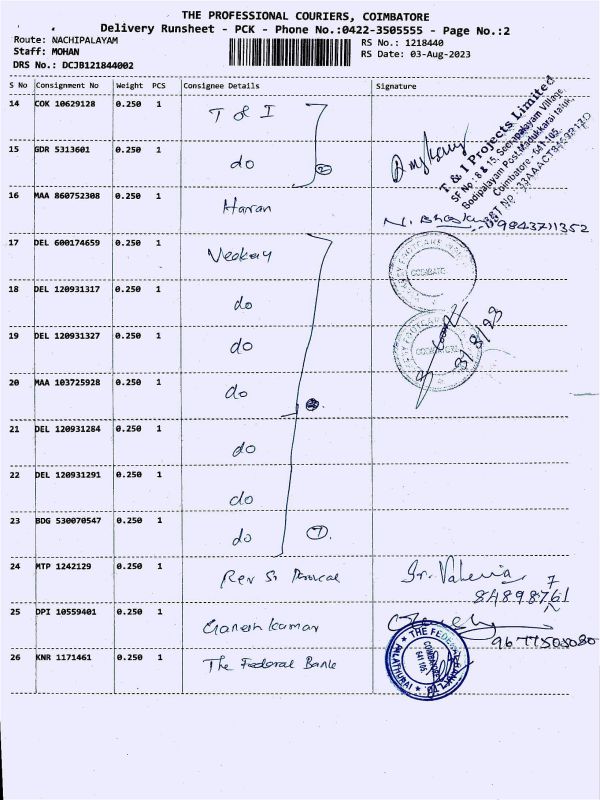 THE PROFESSIONAL COURIERS, COIMBATORE
Delivery Runsheet - PCK - Phone No.:0422-3505555 - Page No.:2
Route: NACHIPALAYAM
RS No.: 1218440
Staff: MOHAN
RS Date: 03-Aug-2023
DRS No.: DCJB121844002
S No Consignment No Weight PCS Consignee Details Signature
14 COK 10629128 0.250 1 T & I
T & I Projects Limited
SF No : 8 & 15, Seerapalayam Village,
Bodipalayam Post, Madukkarai taluk,
Coimbatore - 641 105.
15 GDR 5313601 0.250 1 do 2
16 MAA 860752308 0.250 1 Haran
9843711352
17 DEL 600174659 0.250 1 Veekay
18 DEL 120931317 0.250 1 do
3/8/23
19 DEL 120931327 0.250 1 do
20 MAA 103725928 0.250 1 do
21 DEL 120931284 0.250 1 do
22 DEL 120931291 0.250 1 do
23 BDG 530070547 0.250 1 do 7
24 MTP 1242129 0.250 1 Rev Sr
Sr. Valeria
25 DPI 10559401 0.250 1 Ganesh kumar
26 KNR 1171461 0.250 1 The Federal Bank
THE FEDERAL BANK LTD
COIMBATORE
641 105